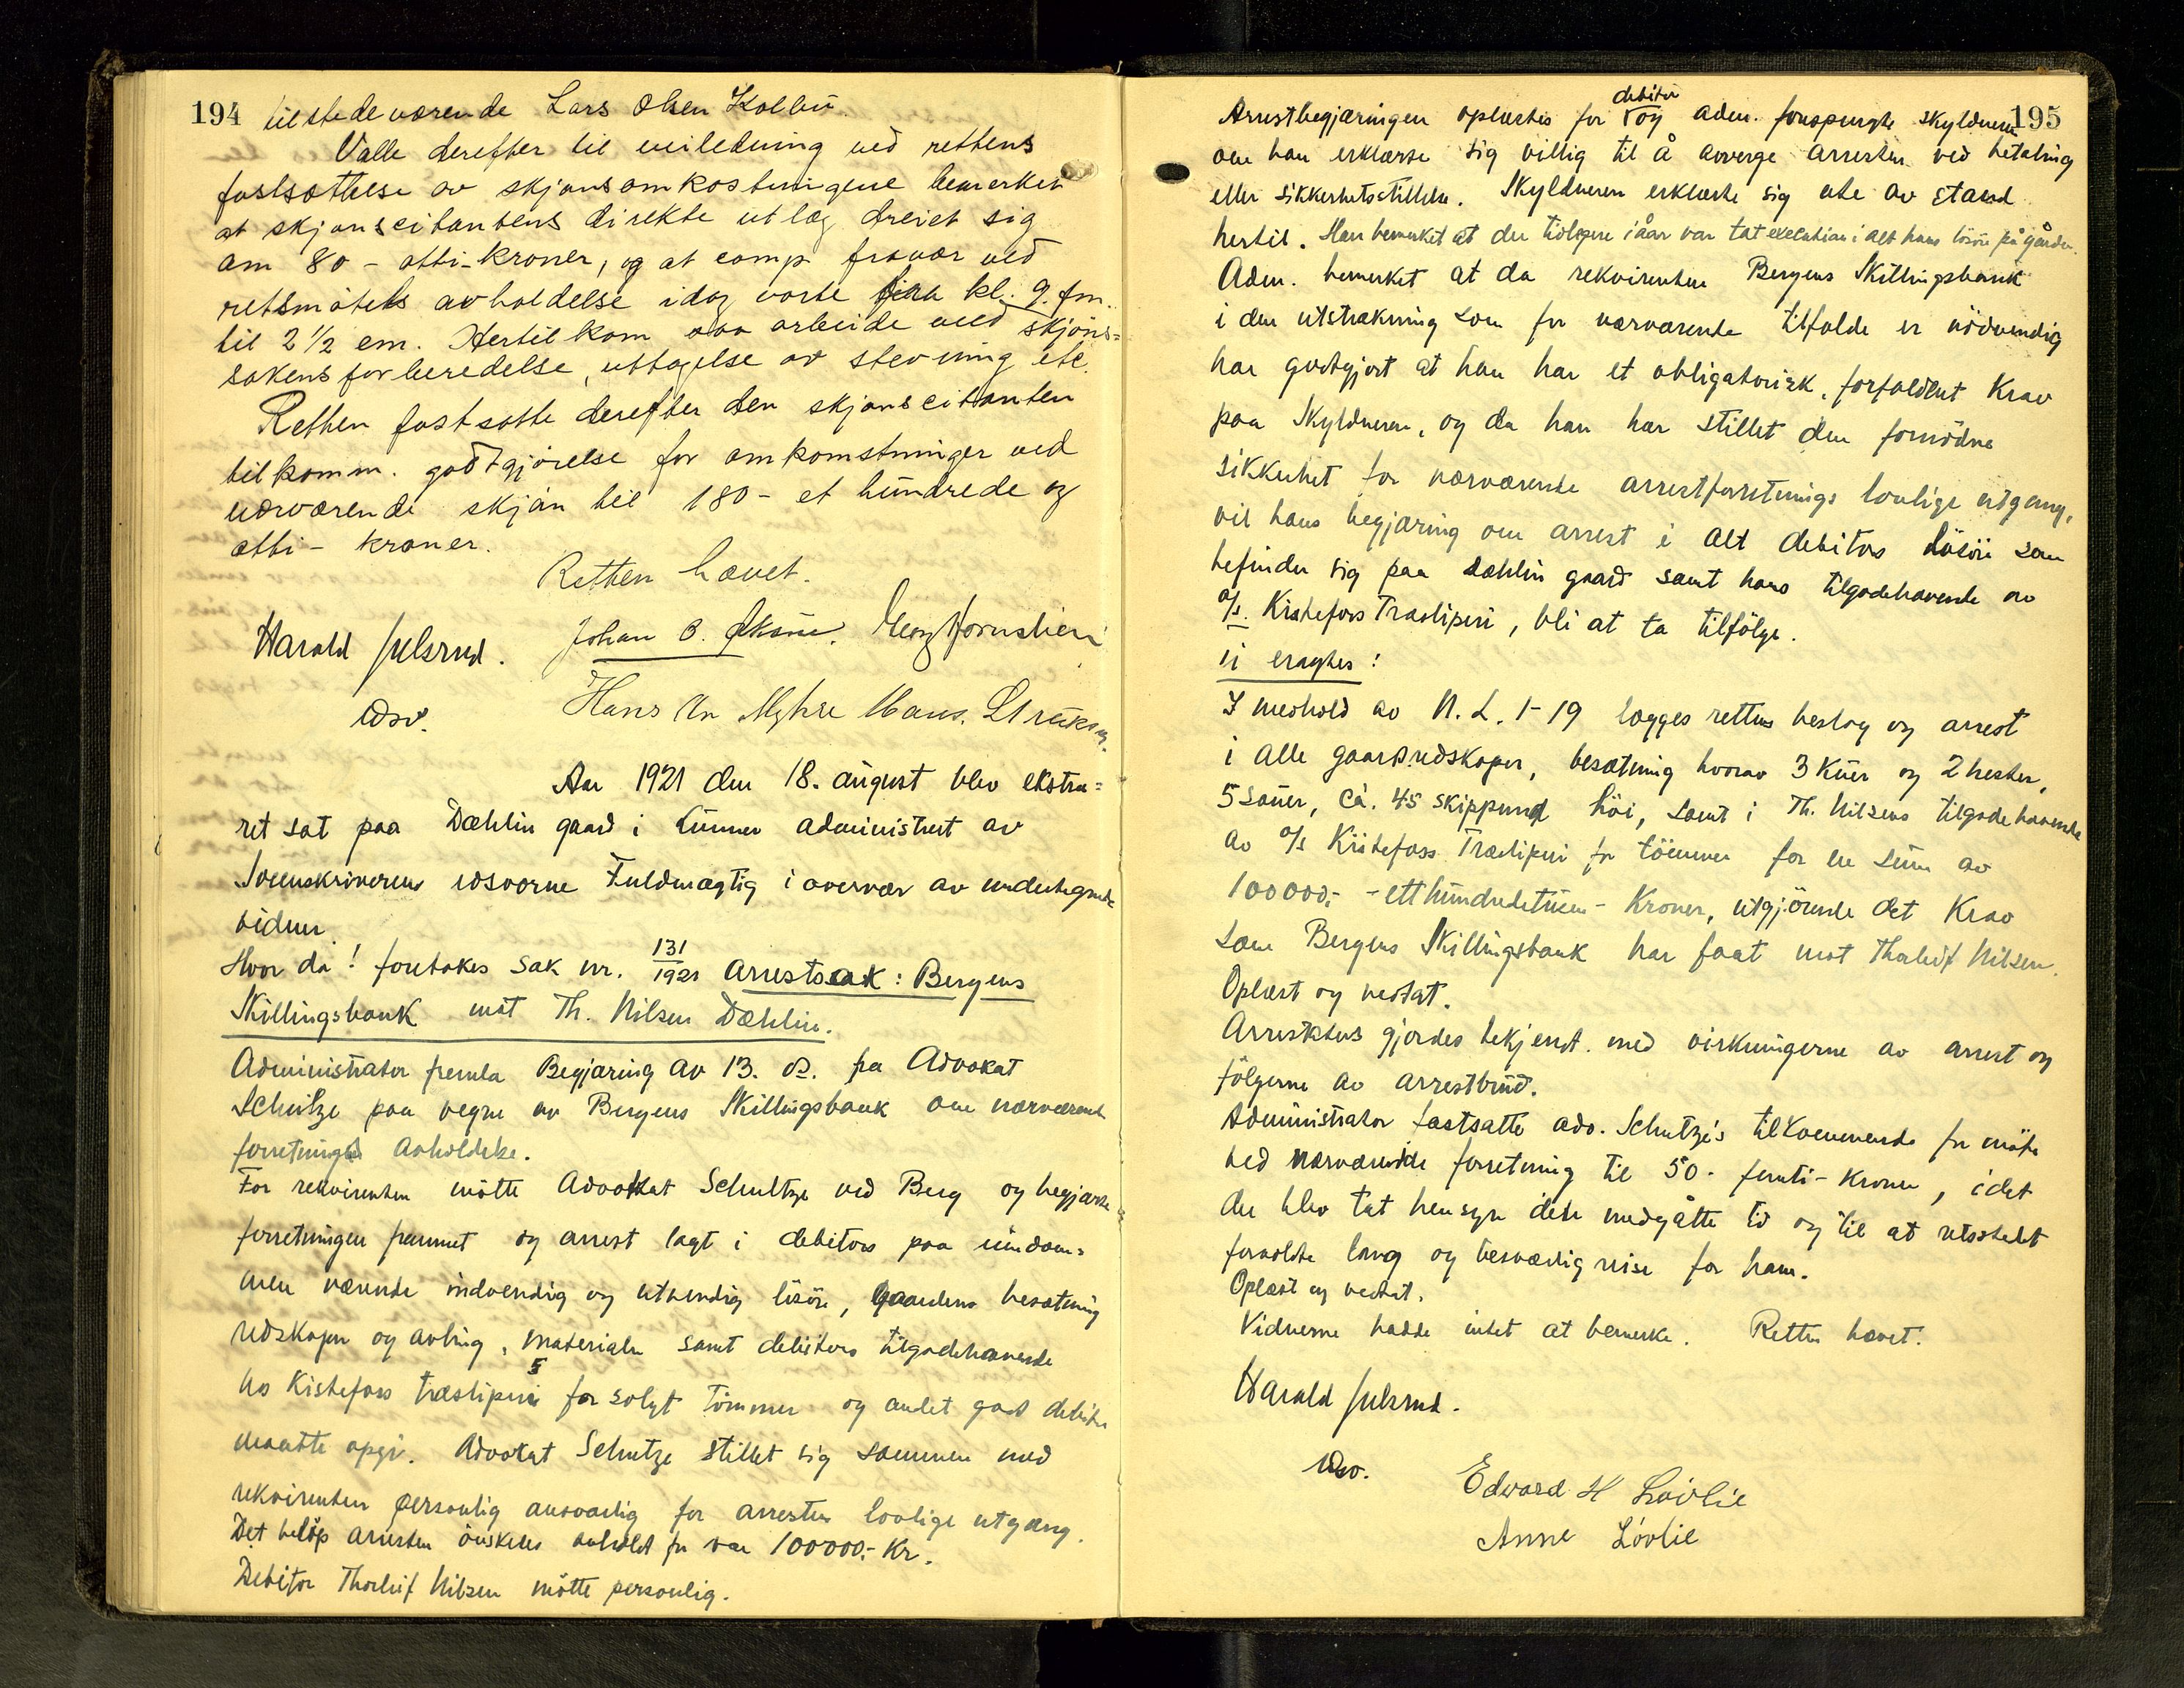 194
tilstedeværende Lars Olsen Kolbu.
Valle derefter til veiledning ved rettens
fastsættelse av skjønsomkostningene bemerket
at skjønscitantens direkte utlæg dreiet sig
om 80 - otti - kroner, og at comp fravær ved
retsmøtets avholdelse idag varte fra kl. 9. fm.
til 2 1/2 em. Hertil kom arbeide med skjøns-
sakens forberedelse, uttagelse av stevning etc.
Retten fastsatte derefter den skjønscitanten
tilkomm. godtgjørelse for omkomstninger ved
nærværende skjøn til 180 - et hundrede og
otti - kroner.
Retten hævet.
Harald Julsrud. Johan B.
edsv. Hans
Aar 1921 den 18. august blev ekstra-
ret sat paa Dæhlin gaard i Lunner administrert av
Sorenskriverens edsvorne Fuldmægtig i overvær av undertegnede
vidner.
Hvor da! foretokes sak nr. 131/1921 arrestsak: Bergens
Skillingsbank mot Th. Nilsen Dæhlin.
Administrator fremla Begjæring av 13. ds. fra Advokat
Schutze paa vegne av Bergens Skillingsbank om nærværende
forretnings avholdelse.
For rekvirenten møtte Advokat Schultze ved Berg og begjærte
forretningen fremmet og arrest lagt i debitors paa eiendom-
men værende indvendig og utvendig løsøre, gaardens besætning
redskaper og avling, materialer samt debitors tilgodehavende
hos Kistefoss træsliperi for solgt tømmer og andet gods debitor
maatte opgi. Advokat Schutze stillet sig sammen med
rekvirenten personlig ansvarlig for arrestens lovlige utgang.
Det beløp arresten ønskedes avholdt for var 100000,- Kr.
Debitor Thorleif Nilsen møtte personlig.
195
Arrestbegjæringen oplæstes for debitor og adm. forespurgte skyldneren
om han erklærte sig villig til å avverge arresten ved betaling
eller sikkerhetsstillelse. Skyldneren erklærte sig ute av stand
hertil. Han bemerket at der tidligere i åar var tat execution i alt hans løsøre på gården.
Adm. bemerket at da rekvirenten Bergens Skillingsbank
i den utstrækning som for nærværende tilfælde er nödvendig
har godtgjort at han har et obligatorisk, forfaldent Krav
paa Skyldneren, og da han har stillet den fornødne
sikkerhet for nærværende arrestforretnings lovlige utgang,
vil hans begjæring om arrest i alt debitors løsøre som
befinder sig paa Dæhlin gaard samt hans tilgodehavende av
a/s. Kistefoss Træsliperi, bli at ta tilfølge.
ti eragtes:
I medhold av N. L. 1-19 lægges rettens beslag og arrest
i alle gaardsredskaper, besætning hvorav 3 Kuer og 2 hester,
5 Sauer, ca. 45 skippund höi, samt i Th. Nilsens tilgodehavende
av a/s Kistefoss Træsliperi for tømmer for en sum av
100000,- - etthundredetusen - Kroner, utgjørende det Krav
som Bergens Skillingsbank har faat mot Thorleif Nilsen.
Oplæst og vedtat.
Arrestatus gjordes bekjendt med virkningerne av arrest og
følgerne av arrestbrud.
Administrator fastsatte adv. Schutze's tilkommende for møte
ved nærværende forretning til 50 - femti - kroner, idet
der blev tat hensyn den medgåtte tid og til at retsstedet
forvoldte lang og besværlig reise for ham.
Oplæst og vedtat.
Vidnerne hadde intet at bemerke. Retten hævet.
Harald Julsrud.
edsv.
Edvard H Lövlie
Anne Lövlie